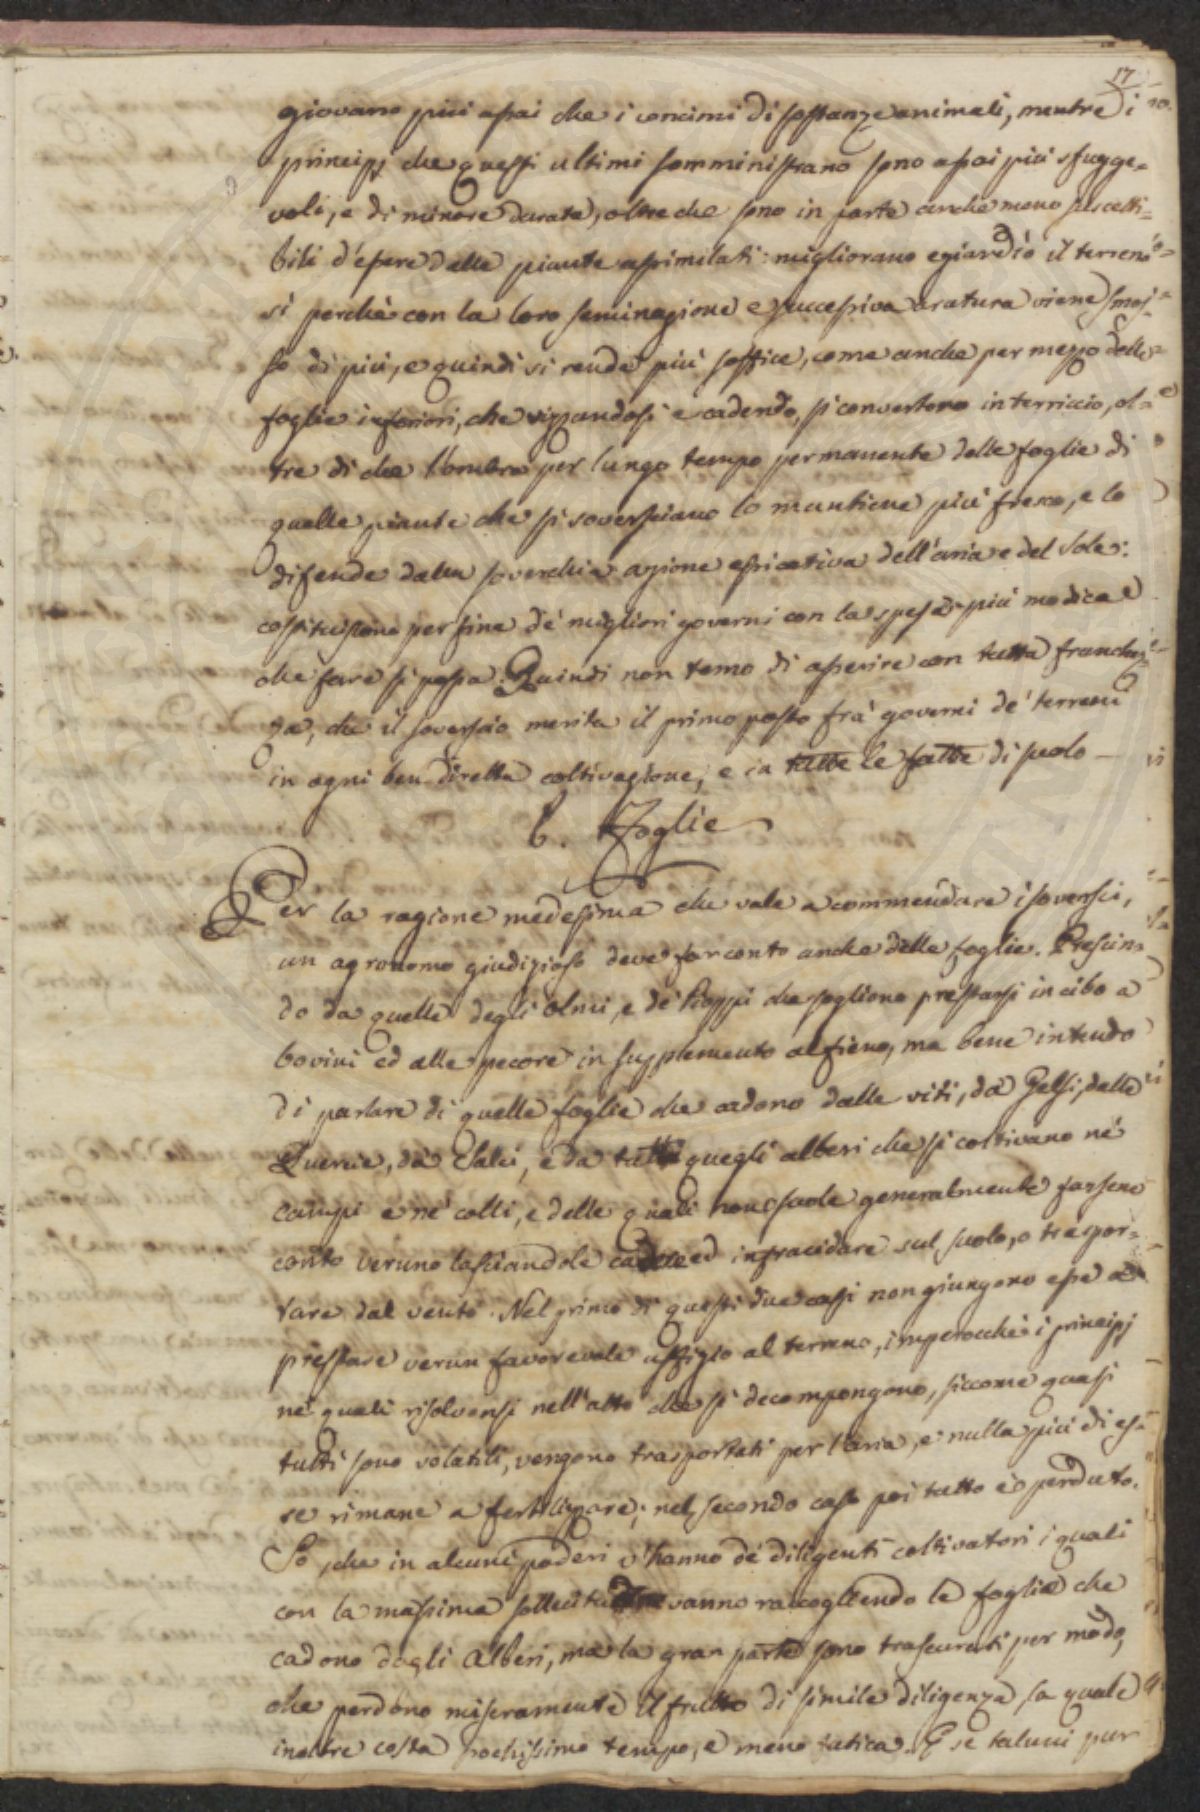 17
giovano più assai che i concimi di sostanze animali, mentre i
principj che questi ultimi somministrano sono assai più sfugge=
voli, e di minore durata, oltre che sono in parte anche meno suscetti=
bili d'essere dalle piante assimilati: migliorano egiandio il terreno
sì perchè con la loro seminagione e successiva aratura viene smos=
so di più, e quindi si rende più soffice, come anche per mezzo delle
foglie inferiori, che vizzandosi e cadendo, si convertono in terriccio, ol=
tre di che l'ombra per lungo tempo permanente delle foglie di
quelle piante che si soversciano lo mantiene più fresco, e lo
difende dalla soverchia azione essicativa dell'aria e del Sole:
costituiscono per fine de' migliori governi con la spesa più modica
che fare si possa. Quindi non temo di asserire con tutta franchez=
za, che il soverscio merita il primo posto frà governi de' terreni
in ogni ben diretta coltivazione, e in tutte le fatte di suolo —
6. Foglie
Per la ragione medesima che vale a commendare i soversci,
un agronomo giudizioso deve far conto anche delle foglie. Prescin=
do da quelle degli Olmi, e de' Pioppi che sogliono prestarsi in cibo a
bovini ed alle pecore in supplemento al fieno, ma bene intendo
di parlare di quelle foglie che cadono dalle viti, da' Gelsi, dalle
Quercie, da' Salci, e da tutti quegli alberi che si coltivano ne'
campi e ne' colli, e delle quali non suole generalmente farsene
conto veruno lasciandole cadere ed infracidare sul suolo, o traspor=
tare dal vento. Nel primo di questi due casi non giungono esse a
prestare verun favorevole uffizio al terreno, imperocchè i principj
ne' quali risolvonsi nell'atto che si decompongono, siccome quasi
tutti sono volatili, vengono trasportati per l'aria, e nulla più di es=
se rimane a fertilizzare; nel secondo caso poi tutto è perduto.
So, che in alcuni poderi v'hanno de' diligenti coltivatori i quali
con la massima sollecitudine vanno raccogliendo le foglie che
cadono dagli Alberi, ma la gran parte sono trascurati per modo,
che perdono miseramente il frutto di simile diligenza la quale
inoltre costa pochissimo tempo, e meno fatica. E se taluni pur